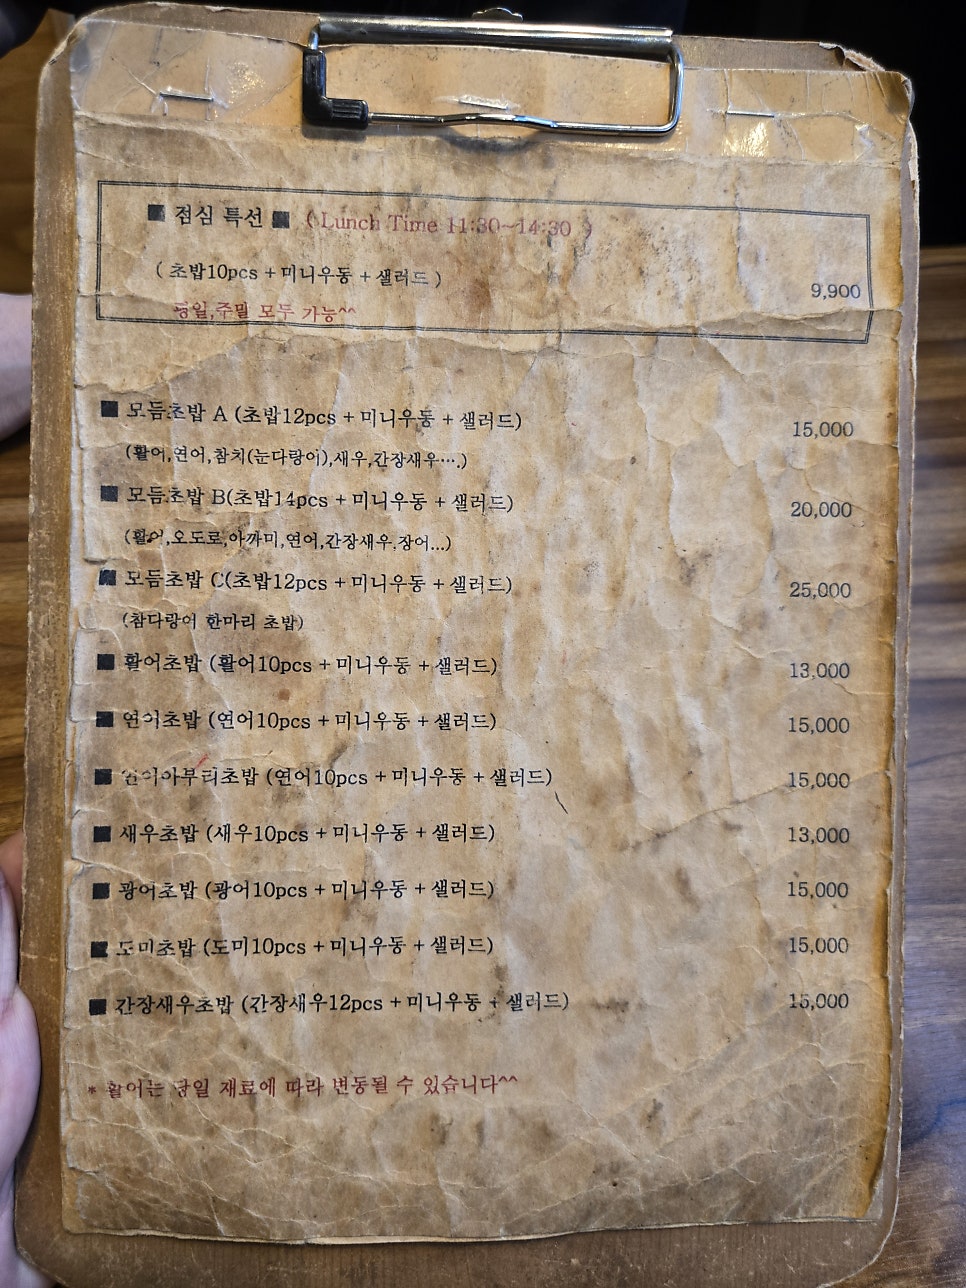 ■ 점심 특선 ■ ( Lunch Time 11:30~14:30 )
( 초밥10pcs + 미니우동 + 샐러드 )
9,900
평일,주말 모두 가능^^
■ 모듬초밥 A (초밥12pcs + 미니우동 + 샐러드) 15,000
(활어,연어,참치(눈다랑어),새우,간장새우….)
■ 모듬초밥 B(초밥14pcs + 미니우동 + 샐러드) 20,000
(활어,오도로,아까미,연어,간장새우,장어...)
■ 모듬초밥 C(초밥12pcs + 미니우동 + 샐러드) 25,000
(참다랑어 한마리 초밥)
■ 활어초밥 (활어10pcs + 미니우동 + 샐러드) 13,000
■ 연어초밥 (연어10pcs + 미니우동 + 샐러드) 15,000
■ 연어아부리초밥 (연어10pcs + 미니우동 + 샐러드) 15,000
■ 새우초밥 (새우10pcs + 미니우동 + 샐러드) 13,000
■ 광어초밥 (광어10pcs + 미니우동 + 샐러드) 15,000
■ 도미초밥 (도미10pcs + 미니우동 + 샐러드) 15,000
■ 간장새우초밥 (간장새우12pcs + 미니우동 + 샐러드) 15,000
* 활어는 당일 재료에 따라 변동될 수 있습니다^^